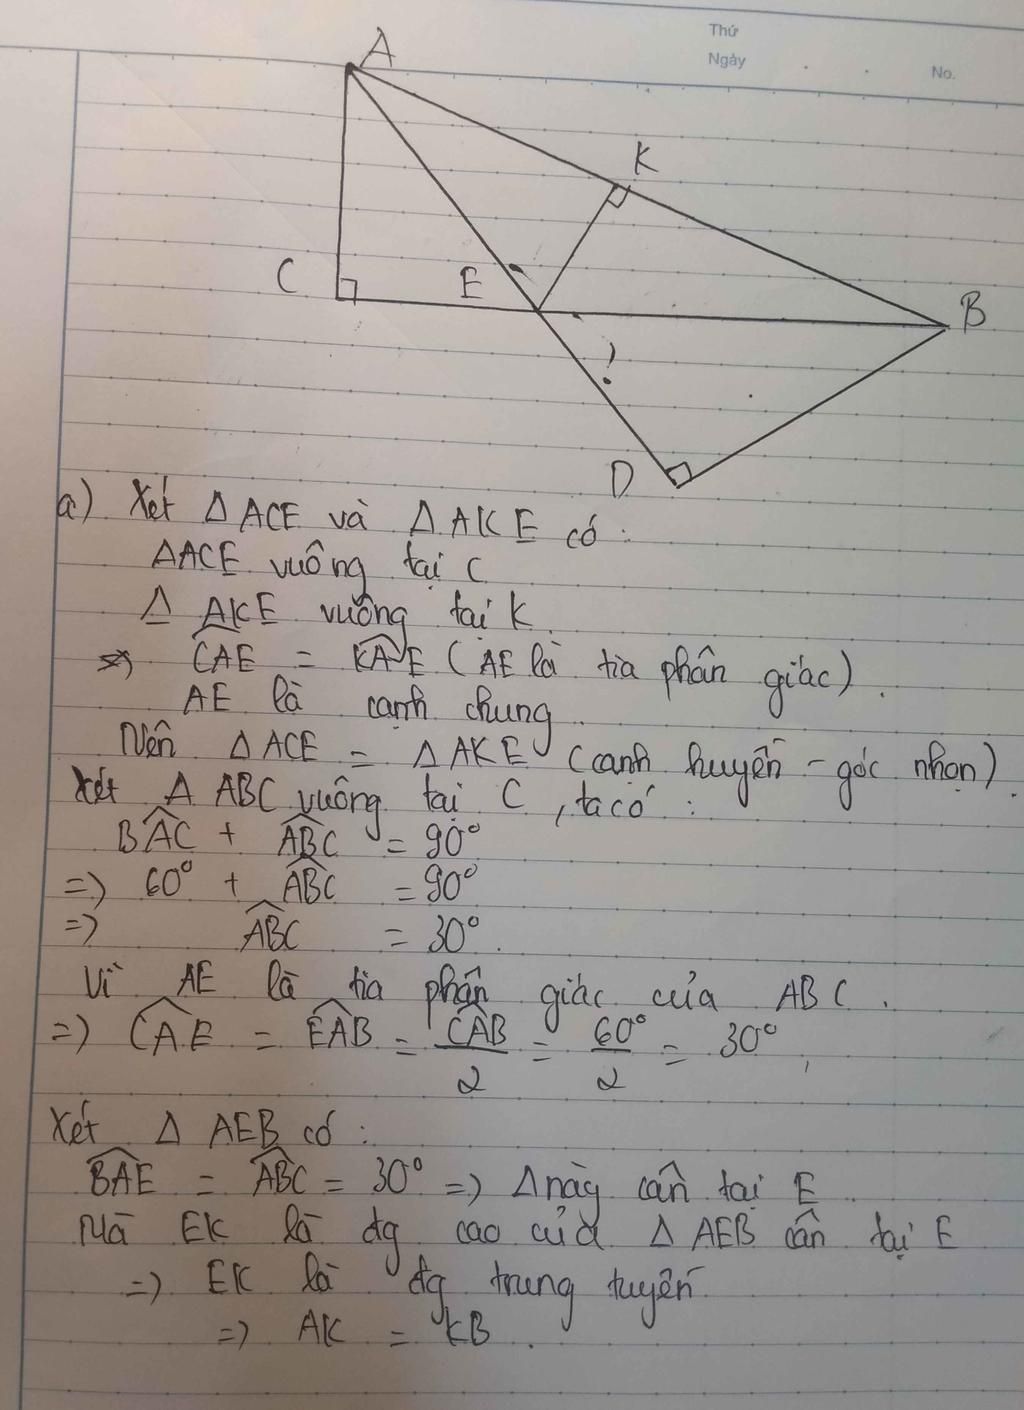 Thứ
Ngày
No.
A
K
C
E
B
D
a) Xét Δ ACE và Δ AKE có :
ΔACE vuông tại C
Δ AKE vuông tại K.
=> CAE = KAE ( AE là tia phân giác) .
AE là cạnh chung
Nên Δ ACE = Δ AKE (cạnh huyền - góc nhọn)
Xét Δ ABC vuông tại C , ta có :
BAC + ABC = 90°
=> 60° + ABC = 90°
=> ABC = 30° .
Vì AE là tia phân giác của ABC .
=> CAE = EAB = CAB/2 = 60°/2 = 30°
Xét Δ AEB có :
BAE = ABC = 30° => Δ này cân tại E
Mà EK là đg cao của Δ AEB cân tại E
=> EK là đg trung tuyến
=> AK = KB .